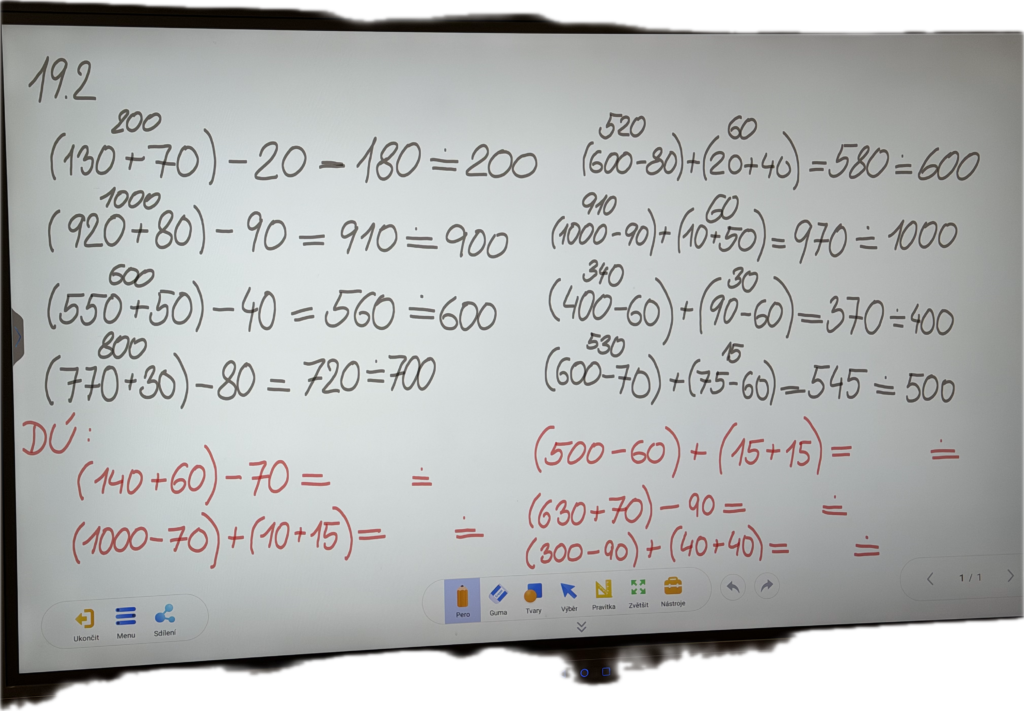 19.2
200
(130+70) - 20 = 180 ≐ 200
1000
(920+80) - 90 = 910 ≐ 900
600
(550+50) - 40 = 560 ≐ 600
800
(770+30) - 80 = 720 ≐ 700
520 60
(600-80)+(20+40) = 580 ≐ 600
910 60
(1000-90)+(10+50) = 970 ≐ 1000
340 30
(400-60)+(90-60) = 370 ≐ 400
530 15
(600-70)+(75-60) = 545 ≐ 500
DÚ:
(140+60) - 70 = ≐
(1000-70)+(10+15) = ≐
(500-60)+(15+15) = ≐
(630+70) - 90 = ≐
(300-90)+(40+40) = ≐
Ukončit Menu Sdílení
Pero Guma Tvary Výběr Pravítka Zvětšit Nástroje
1 / 1